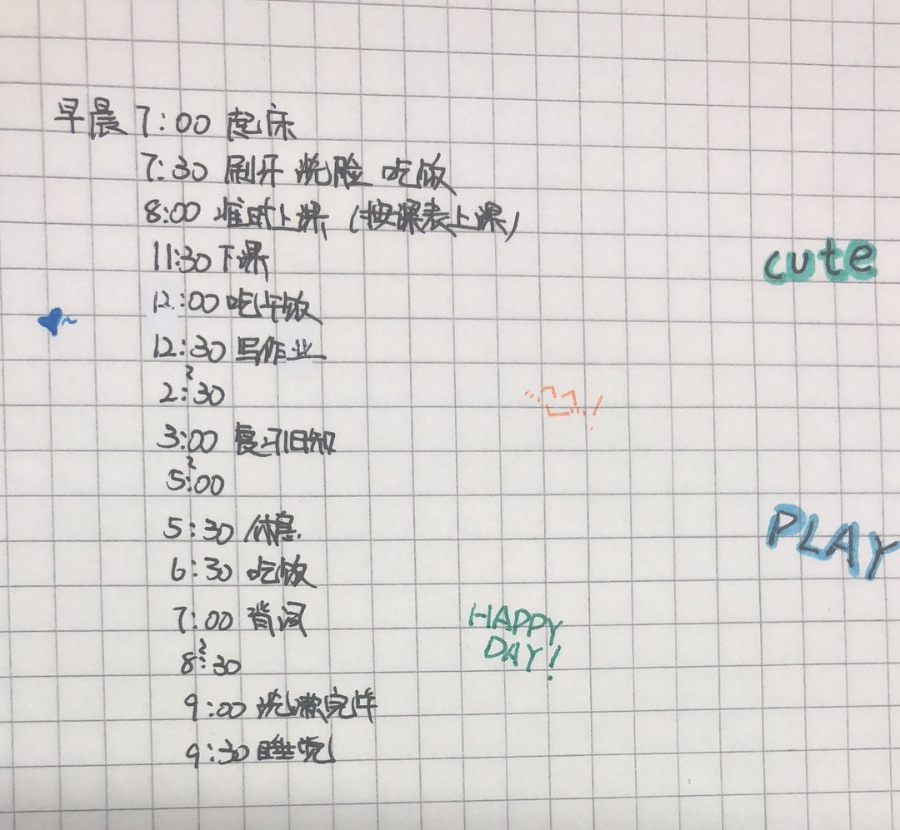 早晨 7:00 起床
7:30 刷牙 洗脸 吃饭
8:00 准时上课 (按课表上课)
11:30 下课
cute
12:00 吃午饭
12:30 写作业
~
2:30
3:00 复习旧知
~
5:00
PLAY
5:30 休息
6:30 吃饭
7:00 背词
HAPPY
DAY!
~
8:30
9:00 洗漱完毕
9:30 睡觉